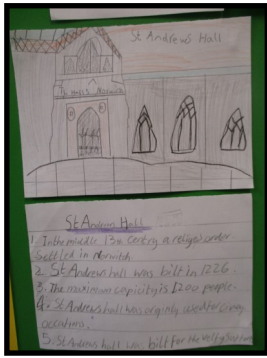 St Andrews Hall
The Halls Norwich
St Andrews Hall
1. In the middle 13th centry a religos order
settled in Norwich
2. St Andrews hall was bilt in 1226.
3. The maximum capicity is 1200 people.
4. St Andrews hall was orginly used for many
occations.
5. St Andrews hall was bilt for the